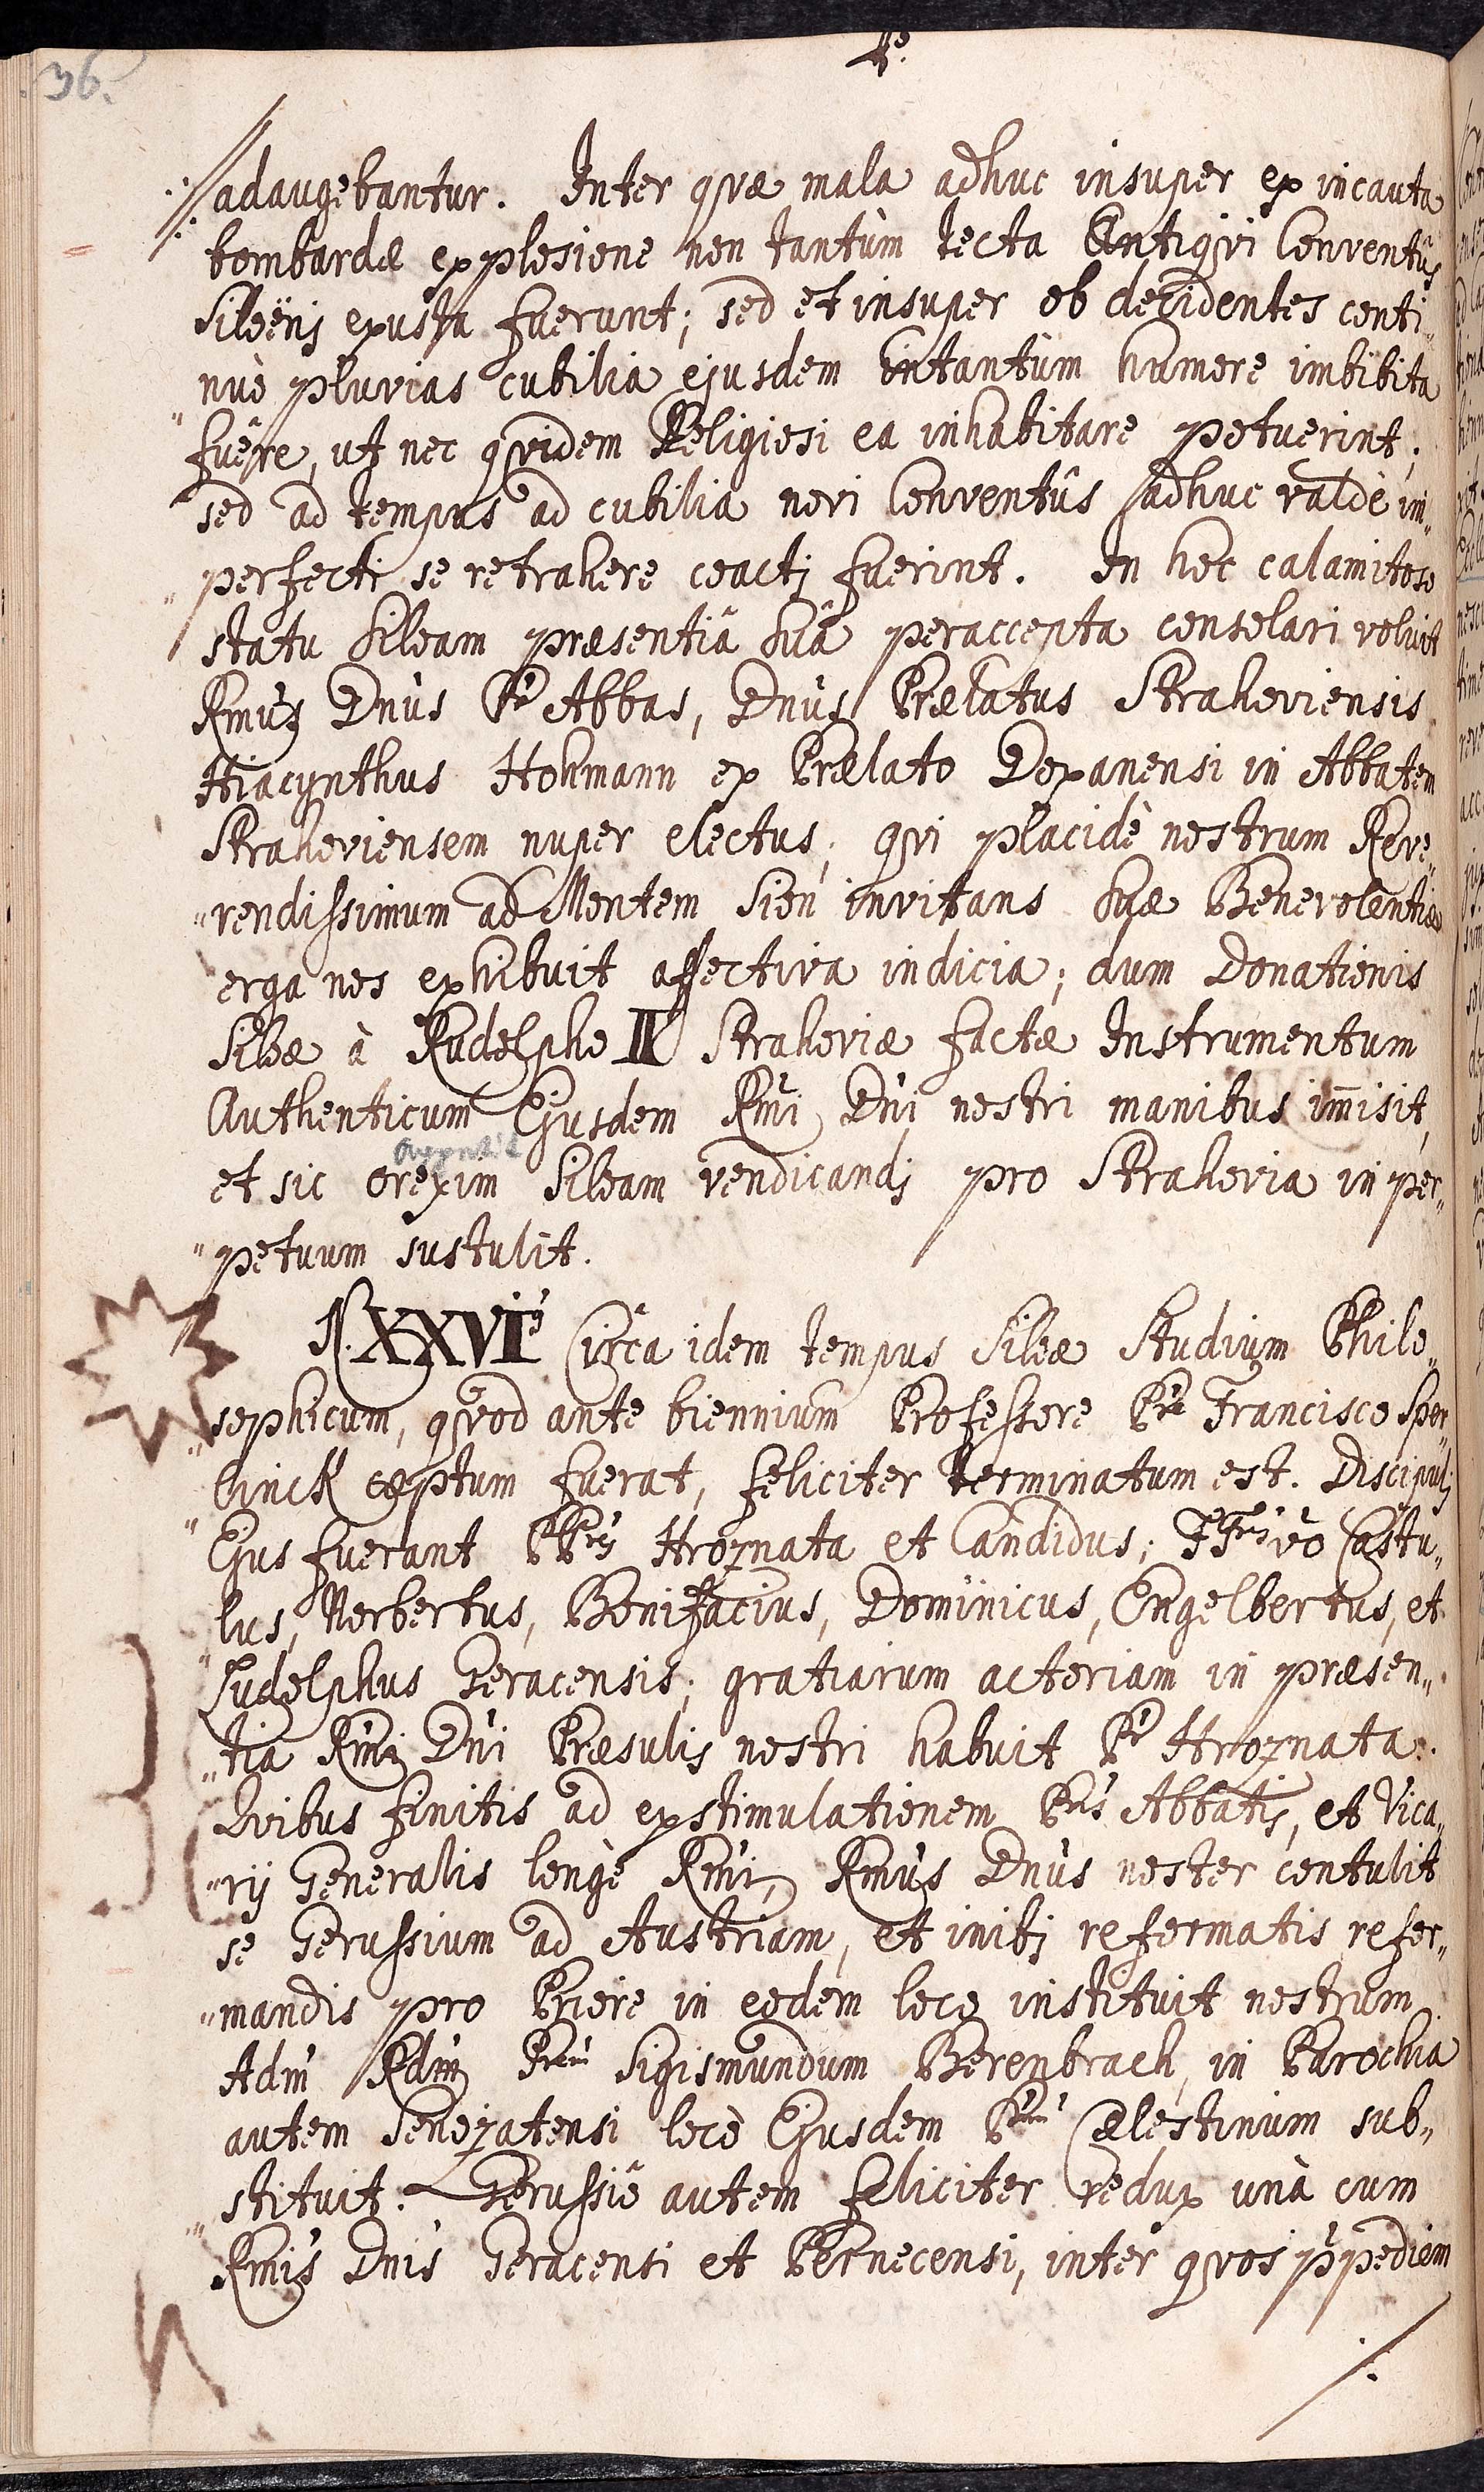 36.
4º.
adaugebantur. Inter qvæ mala adhuc insuper ex incauta
bombardæ explosione non tantùm tecta Antiqvi Conventûs
Siloëns exusta fuerunt; sed et insuper ob decidentes conti„
nuò pluvias cubilia ejusdem intantùm humore imbibita
fuêre, ut nec qvidem Religiosi ea inhabitare potuerint;
sed ad tempus ad cubilia novi Conventûs adhuc valdè im„
„perfecti se retrahere coacti fuerint. In hoc calamitoso
statu Siloam præsentiâ suâ peraccepta consolari voluit
Rmus Dnus Pr Abbas, Dnus Prælatus Strahoviensis
Hiacynthus Hohmann ex Prælato Doxanensi in Abbatem
Strahoviensem nuper electus; qvi placidè nostrum Reve„
„rendissimum ad Montem Sion invitans suæ Benevolentiæ
erga nos exhibuit affectiva indicia; dum Donationis
Siloæ à Rudolpho II Strahoviæ factæ Instrumentum
Authenticum Ejusdem Rmi Dni nostri manibus im̅isit,
appetit
et sic orexim Siloam vendicandi pro Strahovia in per„
„petuum sustulit.
N. XXVI. Circa idem tempus Siloæ Studium Philo„
„sophicum, qvod ante biennium Professore Pre Francisco Spor„
„ Cinck cœptum fuerat, feliciter terminatum est. Discipuli
Ejus fuerant PPres Hroznata et Candidus; FFres vo Castu„
lus, Norbertus, Bonifacius, Dominicus, Engelbertus, et
Ludolphus Geracensis; gratiarum actoriam in præsen„
„tia Rmi Dni Præsulis nostri habuit Pr Hroznata.
Qvibus finitis ad exstimulationem Pris Abbatis, et Vica„
„rij Generalis longè Rmi, Rmus Dnus noster contulit
se Gerussium ad Austriam, et inibi reformatis refor„
„mandis pro Priore in eodem loco instituit nostrum
Adm Rdm Prem Sigismundum Berenbrach, in Parochia
autem Senozatensi locò Ejusdem Prem Cælestinum sub„
stituit. Gerussiô autem feliciter redux unà cum
Rmis Dnis Geracensi et Pernecensi, inter qvos ppediem